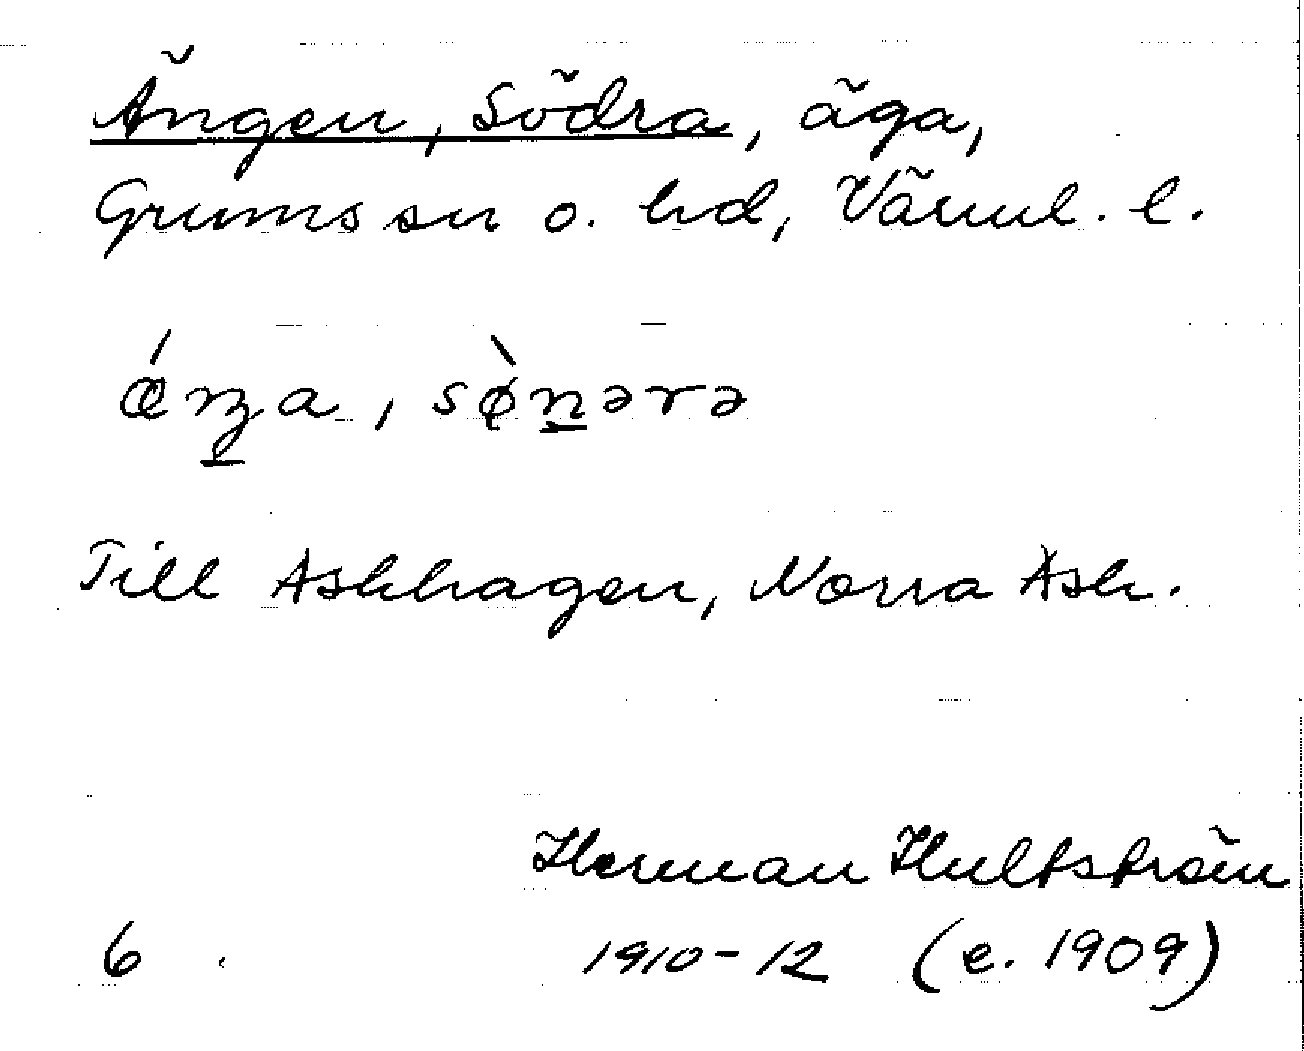 Ängen, Södra, äga,
Grums sn o. hd, Värml. l.
ǽŋa, sø̀nərə
Till Askhagen, Norra Ask.
Herman Hultström
6 1910-12 (e. 1909)